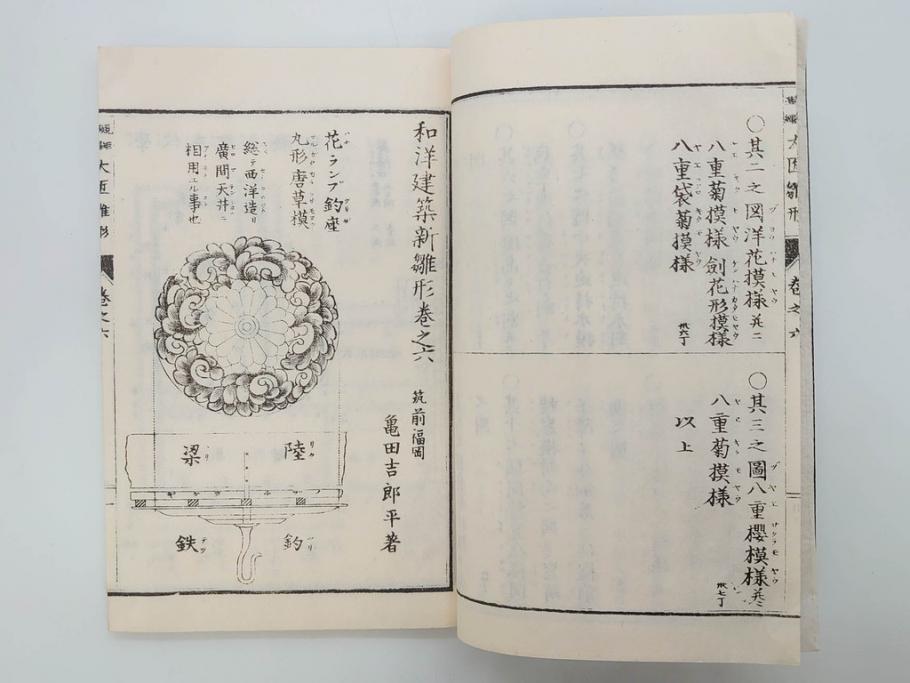 大匠雛形 巻之六
○其二之図洋花摸様并ニ
八重菊摸様 劍花形摸様
卅六丁
八重袋菊摸様
○其三之圖八重櫻模様并ニ
卅七丁
八重菊摸様
以上
和洋建築新雛形巻之六
筑前福岡
亀田吉郎平著
花ランプ釣座
丸形唐草摸
總テ西洋造リ
廣間天井ニ
相用エル事也
陸梁
釣鉄
大匠雛形 巻之六